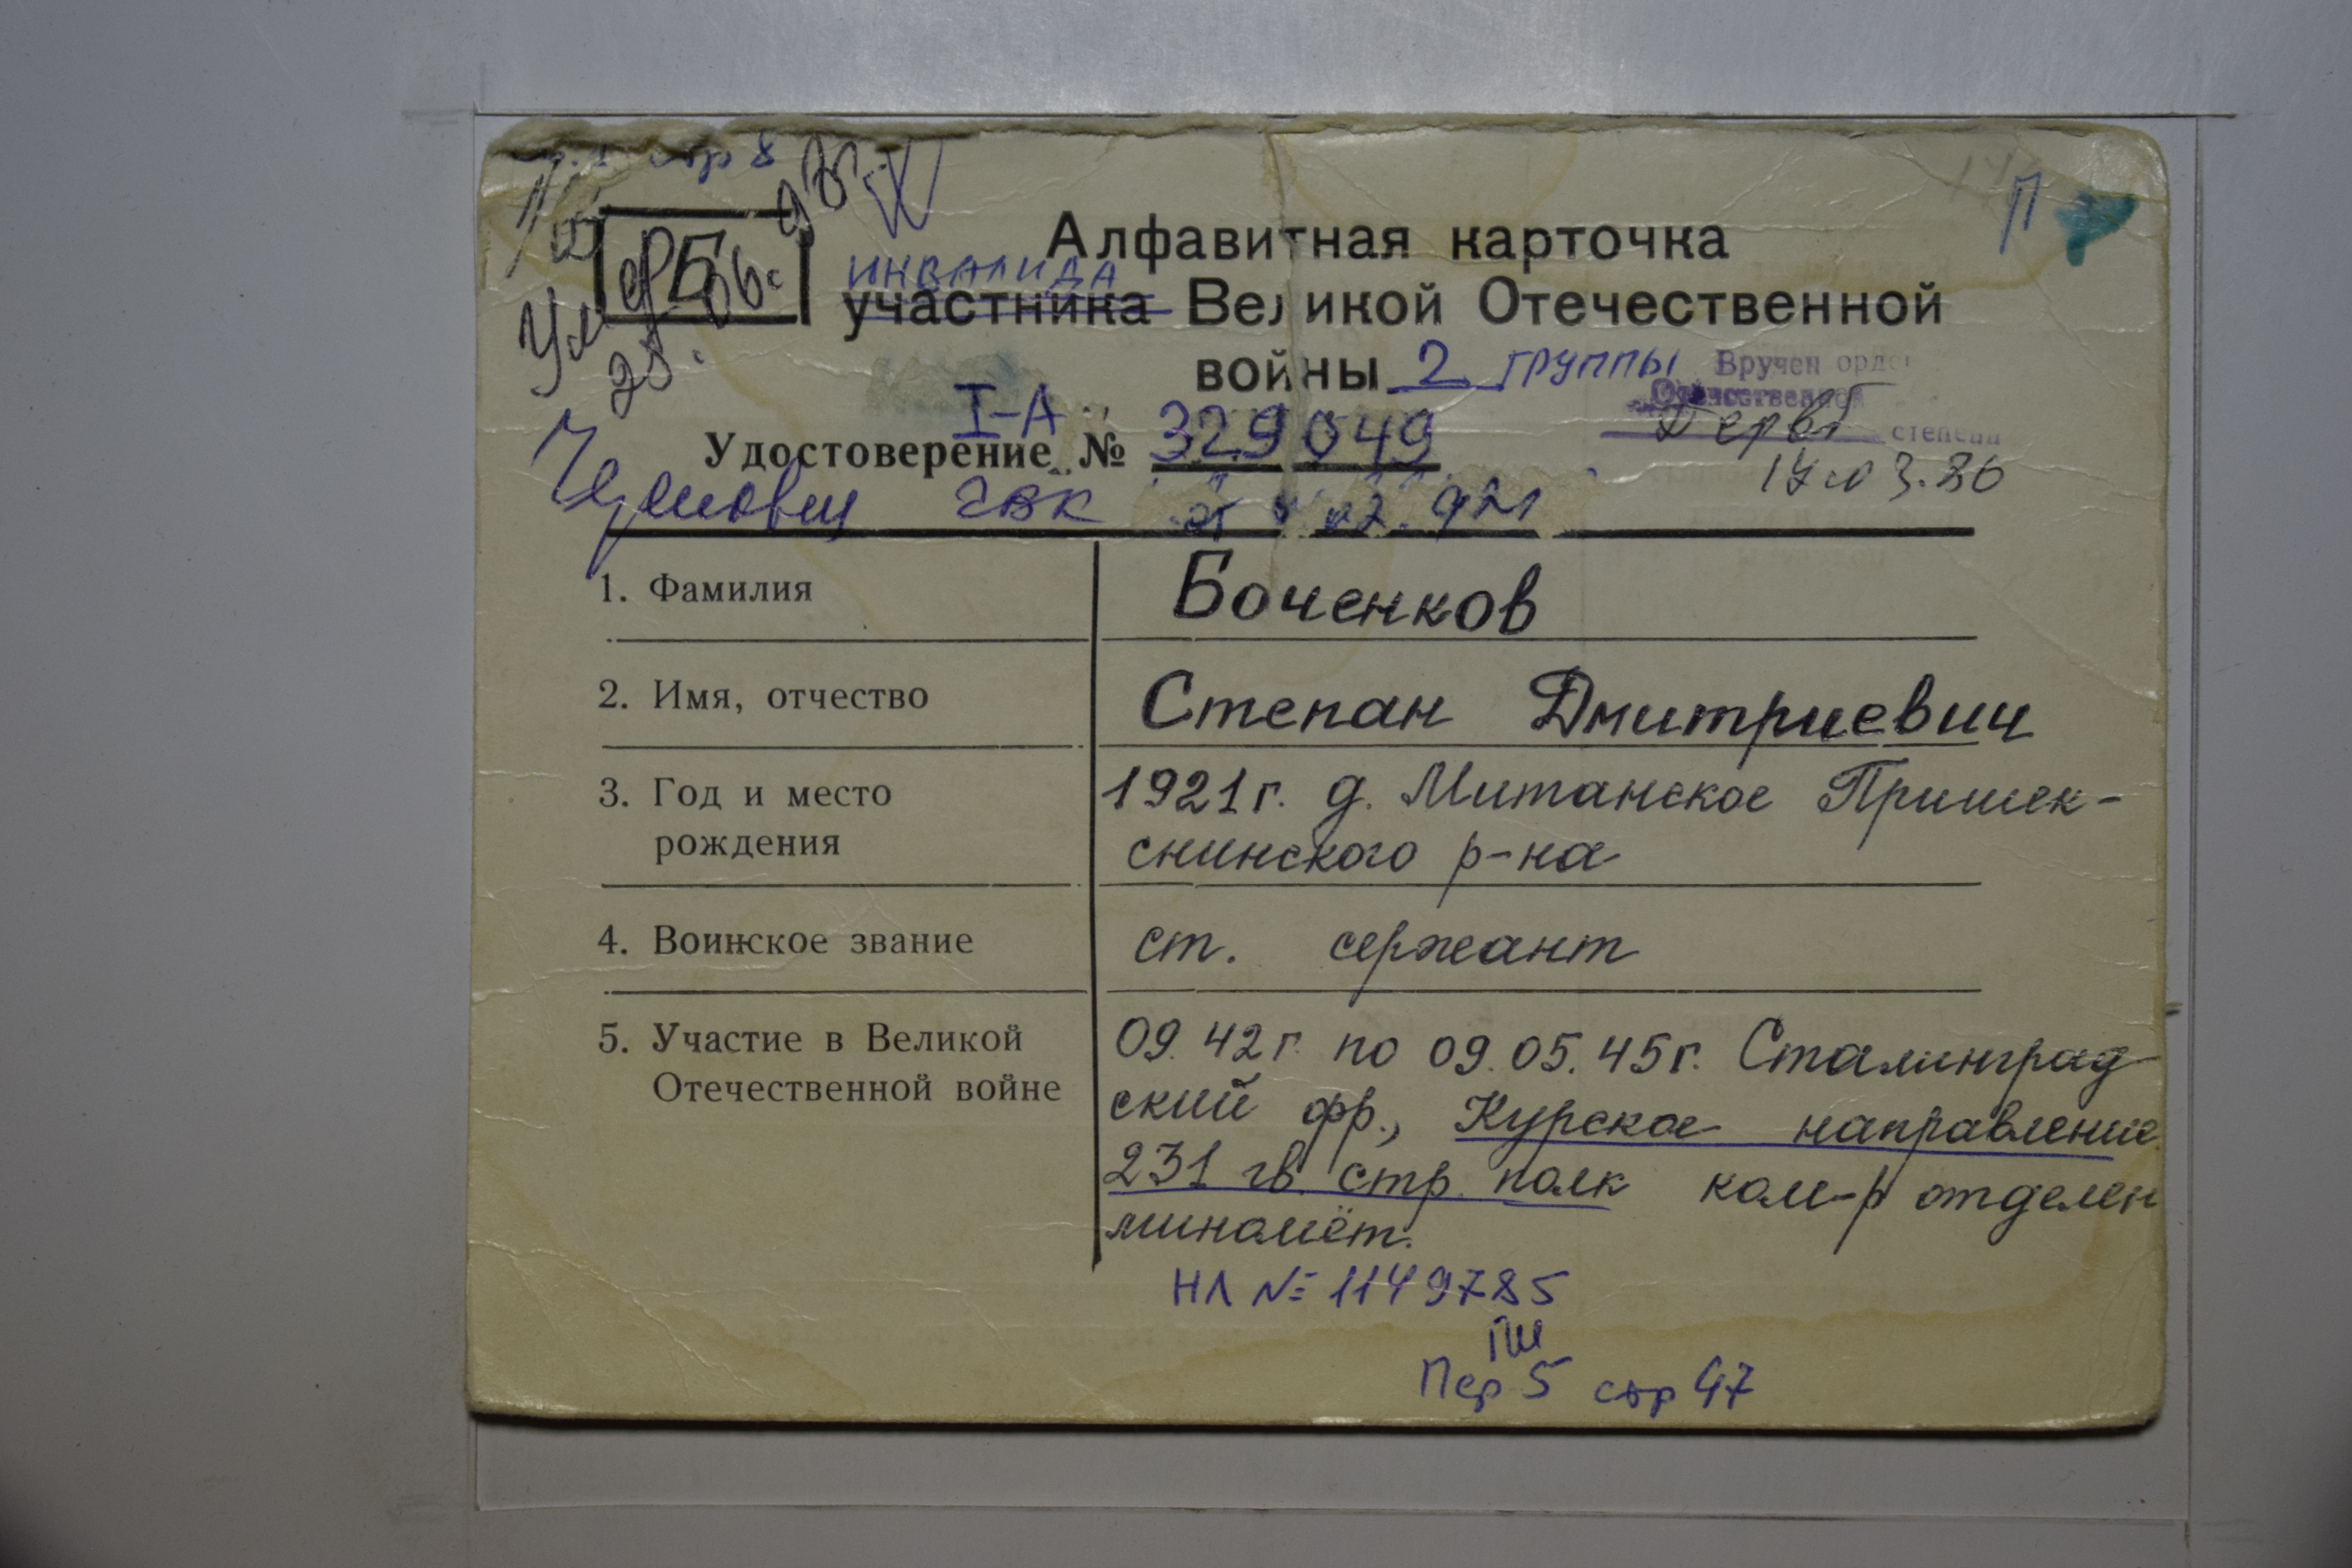 стр 8
П
Алфавитная карточка
инвалида
участника Великой Отечественной
войны 2 группы
Вручен орде
Отечественной
степени
17.03.86
I-А
Удостоверение № 329049
Череповец ГВК
1. Фамилия Боченков
2. Имя, отчество Степан Дмитриевич
3. Год и место 1921 г. д. Митанское Пришек-
рождения снинского р-на
4. Воинское звание ст. сержант
5. Участие в Великой 09.42 г. по 09.05.45 г. Сталинград
Отечественной войне ский фр., Курское направление
231 гв. стр. полк ком-р отделен
миномёт.
НЛ № 1149785
ПШ
Пер 5 стр 47